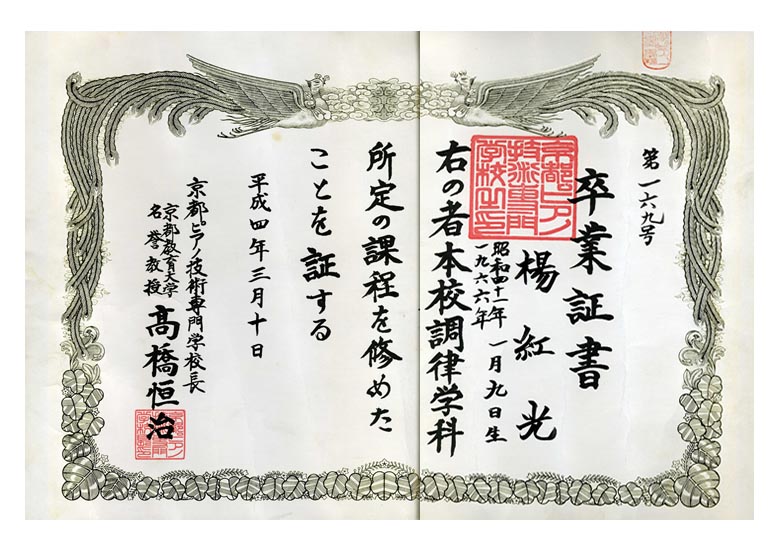 第一六九号
卒業証書
楊紅光
昭和四十一年
一九六六年
一月九日生
右の者本校調律学科
所定の課程を修めた
ことを証する
平成四年三月十日
京都ピアノ技術専門学校長
京都教育大学
名誉教授
髙橋恒治
京都ピアノ
技術専門
学校之印